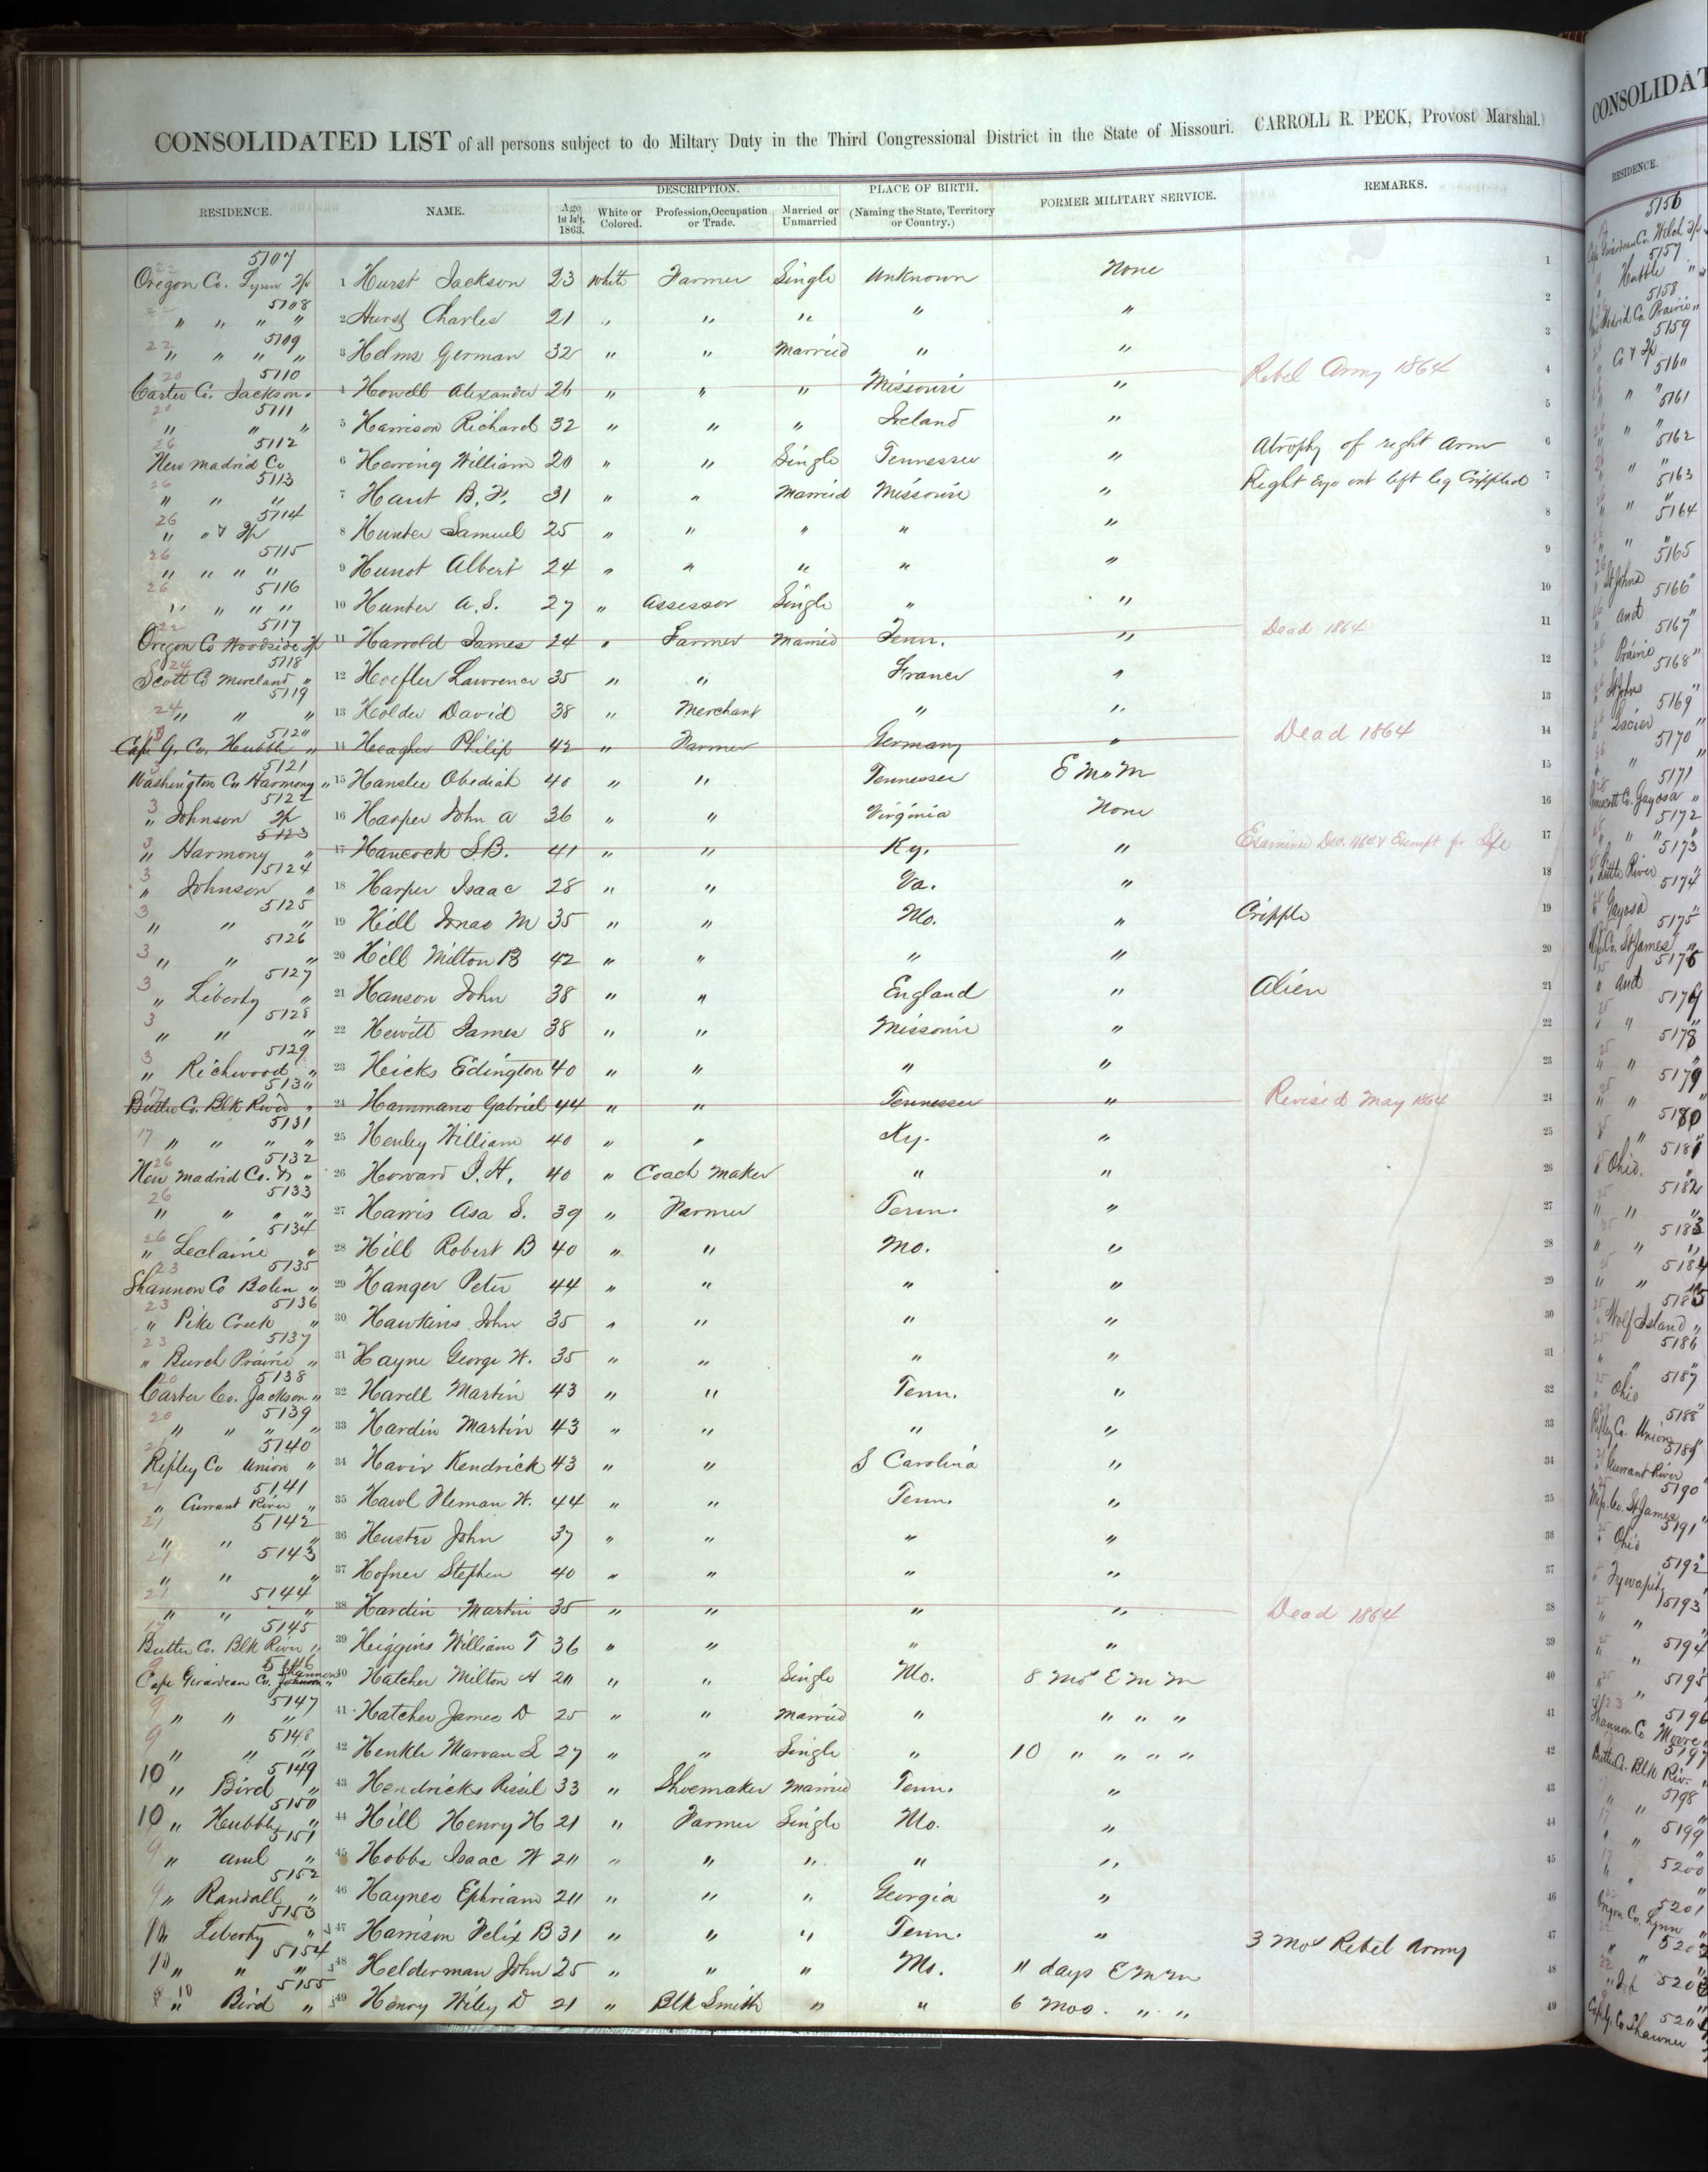 CONSOLIDATED LIST of all persons subject to do Miltary Duty in the Third Congressional District in the State of Missouri. CARROLL R. PECK, Provost Marshal.
RESIDENCE. NAME. DESCRIPTION. PLACE OF BIRTH. FORMER MILITARY SERVICE. REMARKS.
Age 1st July, 1863. White or Colored. Profession, Occupation or Trade. Married or Unmarried (Naming the State, Territory or Country.)
5107
22 Oregon Co. Lynn Tp 1 Hurst Jackson 23 White Farmer Single Unknown None 1
5108
22 " " " " 2 Hurst Charles 21 " " " " " 2
5109
22 " " " " 3 Helms German 32 " " Married " " 3
5110
20 Carter Co. Jackson " 4 Howell Alexander 26 " " " Missouri " Rebel Army 1864 4
5111
20 " " " 5 Harrison Richard 32 " " " Ireland " 5
5112
26 New Madrid Co 6 Herring William 20 " " Single Tennessee " Atrophy of right Arm 6
5113
26 " " " 7 Haut B. F. 31 " " Married Missouri " Right Eye out left leg Crippled 7
5114
26 " " & Tp 8 Hunter Samuel 25 " " " " " 8
5115
26 " " " " 9 Hunot Albert 24 " " " " " 9
5116
26 " " " " 10 Hunter A. S. 27 " Assessor Single " " 10
5117
22 Oregon Co Woodside Tp 11 Harrold James 24 " Farmer Married Tenn. " Dead 1864 11
5118
24 Scott Co Moreland " 12 Hoefler Lawrence 35 " " France " 12
5119
24 " " " 13 Holder David 38 " Merchant " " 13
5120
Cape G. Co. Hubble " 14 Heagher Philip 42 " Farmer Germany " Dead 1864 14
5121
3 Washington Co Harmony " 15 Hanslee Obediah 40 " " Tennessee E M M 15
5122
3 " Johnson Tp 16 Harper John A 36 " " Virginia None 16
5123
3 " Harmony " 17 Hancock S.B. 41 " " Ky. " Examined Dec. 1864 Exempt for 17
5124
3 " Johnson " 18 Harper Isaac 28 " " Va. " 18
5125
3 " " " 19 Hill M 35 " " Mo. " Cripple 19
5126
3 " " " 20 Hill Milton B 42 " " " " 20
5127
3 " Liberty " 21 Hanson John 38 " " England " Alien 21
5128
3 " " " 22 Hewitt James 38 " " Missouri " 22
5129
3 " Richwood " 23 Hicks Edington 40 " " " " 23
5130
17 Butler Co. Blk River " 24 Hammans Gabriel 44 " " Tennessee " Revised May 1864 24
5131
17 " " " " 25 Henley William 40 " " Ky. " 25
5132
26 New Madrid Co. & " 26 Howard J. H. 40 " Coach Maker " " 26
5133
26 " " " " 27 Harris Asa S. 39 " Farmer Tenn. " 27
5134
26 " Leclaine " 28 Hill Robert B 40 " " Mo. " 28
5135
23 Shannon Co Bolen " 29 Hanger Peter 44 " " " " 29
5136
23 " Pike Creek " 30 Hawkins John 35 " " " " 30
5137
23 " Burch Prairie " 31 Hayne George W. 35 " " " " 31
5138
20 Carter Co. Jackson " 32 Harell Martin 43 " " Tenn. " 32
5139
20 " " " " 33 Hardin Martin 43 " " " " 33
5140
21 Ripley Co Union " 34 Kendrick 43 " " S Carolina " 34
5141
21 " Currant River " 35 Heman W. 44 " " Tenn. " 35
5142
21 " " " 36 Huster John 37 " " " " 36
5143
21 " " " 37 Hofner Stephen 40 " " " " 37
5144
21 " " " 38 Hardin Martin 35 " " " " Dead 1864 38
5145
17 Butler Co. Blk River " 39 Higgins William T 36 " " " " 39
5146
9 Cape Girardeau Co. Shannon " 40 Hatcher Milton A 20 " " Single Mo. 8 Mos E M M 40
5147
9 " " " 41 Hatcher James D 25 " " Married " " " " 41
5148
9 " " " 42 Henkle Marvan L 27 " " Single " 10 " " " " 42
5149
10 " Bird " 43 Hendricks 33 " Shoemaker Married Tenn. " 43
5150
10 " Hubble " 44 Hill Henry H 21 " Farmer Single Mo. " 44
5151
9 " " 45 Hobbs Isaac W 20 " " " " " 45
5152
9 " Randall " 46 Haynes Ephriam 20 " " " Georgia " 46
5153
10 " Liberty " 47 Harrison Felix B 31 " " " Tenn. " 3 Mos Rebel Army 47
5154
10 " " " 48 Helderman John 25 " " " Mo. 11 days E M M 48
5155
10 " Bird " 49 Henry Wiley D 21 " Blk Smith " " 6 Mos. " " 49
CONSOLIDAT
RESIDENCE.
5156
5157
" Hubble "
5158
5159
Co & Tp
5160
5161
5162
5163
5164
5165
St Johns
5166
5167
Prairie
5168
St Johns
5169
5170
5171
5172
5173
Little River
5174
Gayosa
5175
St James
5176
5177
5178
5179
5180
5181
Ohio.
5182
5183
5184
5185
Wolf Island "
5186
5187
Ohio
5188
Ripley Co. Union
5189
Currant River
5190
St James
5191
Ohio
5192
Tywapity
5193
5194
5195
5196
Shannon Co Moore
5197
Butler Co. Blk Riv.
5198
5199
5200
5201
Oregon Co. Lynn
5202
5203
5204